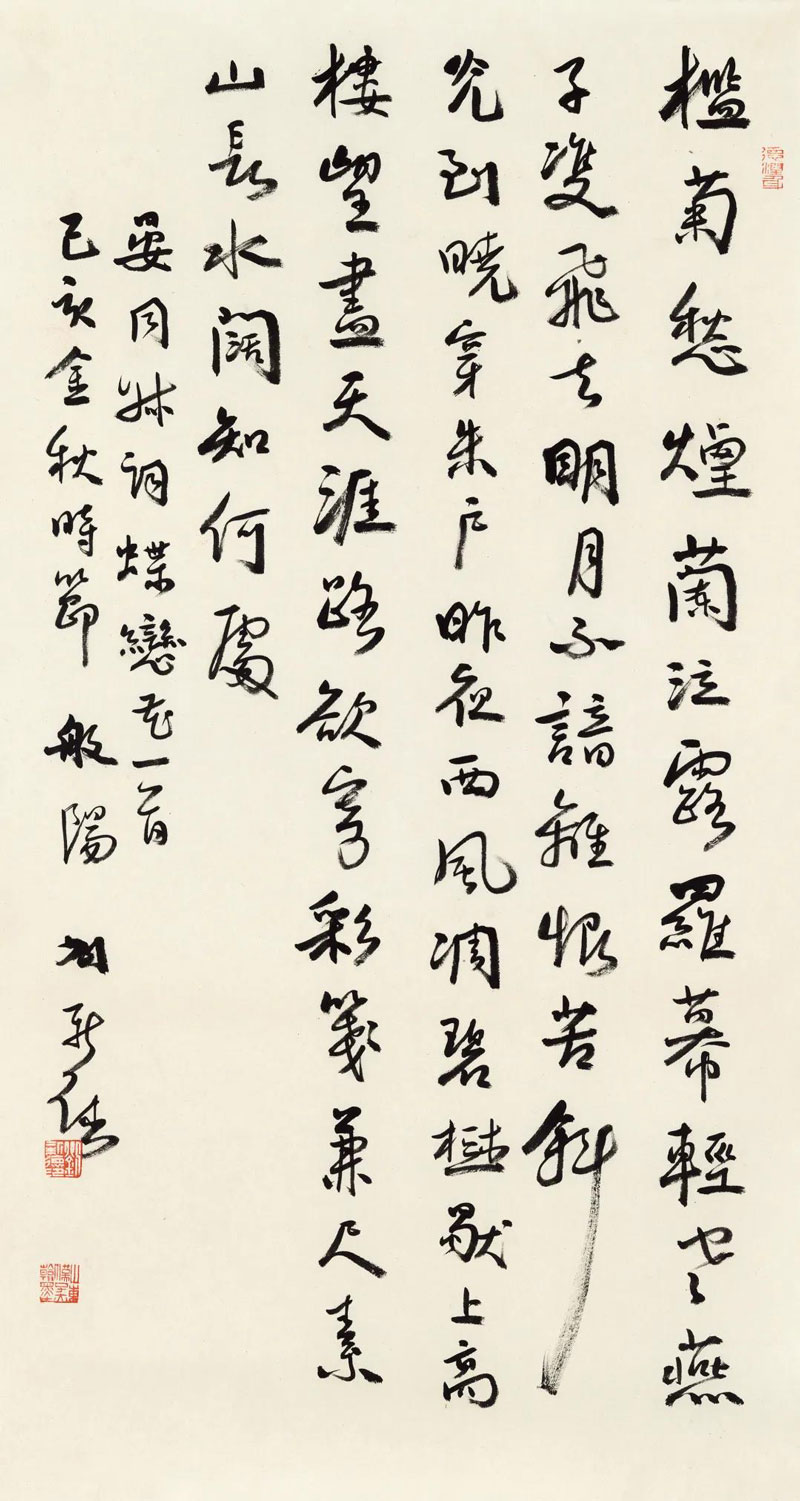 檻菊愁煙蘭泣露羅幕輕寒燕
子雙飛去明月不諳離恨苦斜
光到曉穿朱戶昨夜西風凋碧樹獨上高
樓望盡天涯路欲寄彩箋兼尺素
山長水闊知何處
晏同叔詞蝶戀花一首
己亥金秋時節 般陽 劉新德